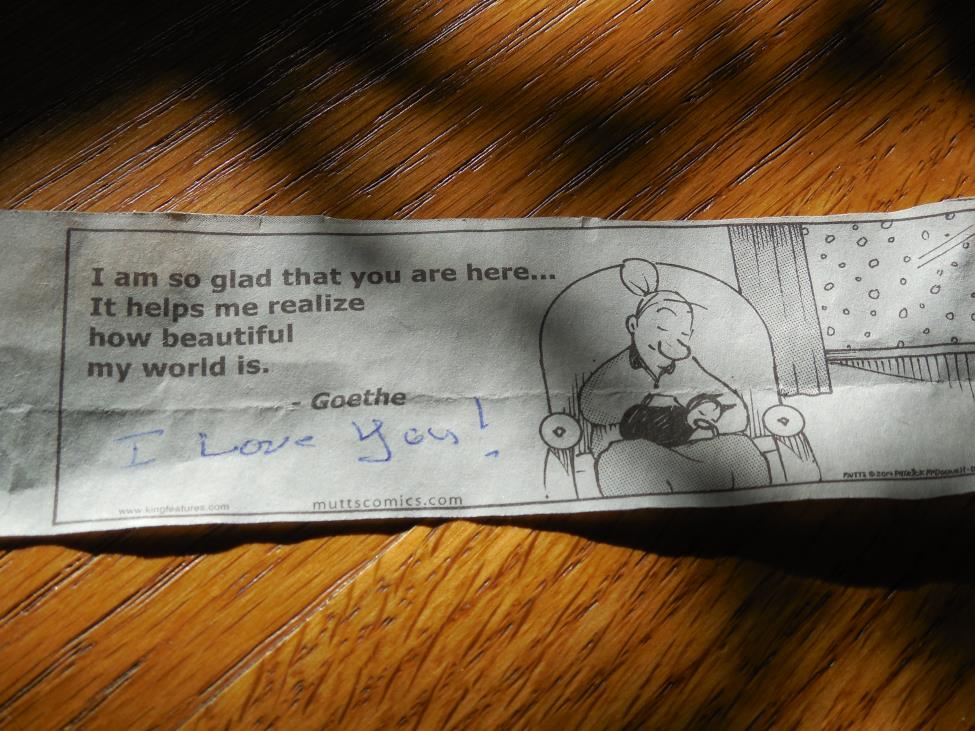 I am so glad that you are here...
It helps me realize
how beautiful
my world is.
- Goethe
I Love You!
www.kingfeatures.com
muttscomics.com
MUTTS ©